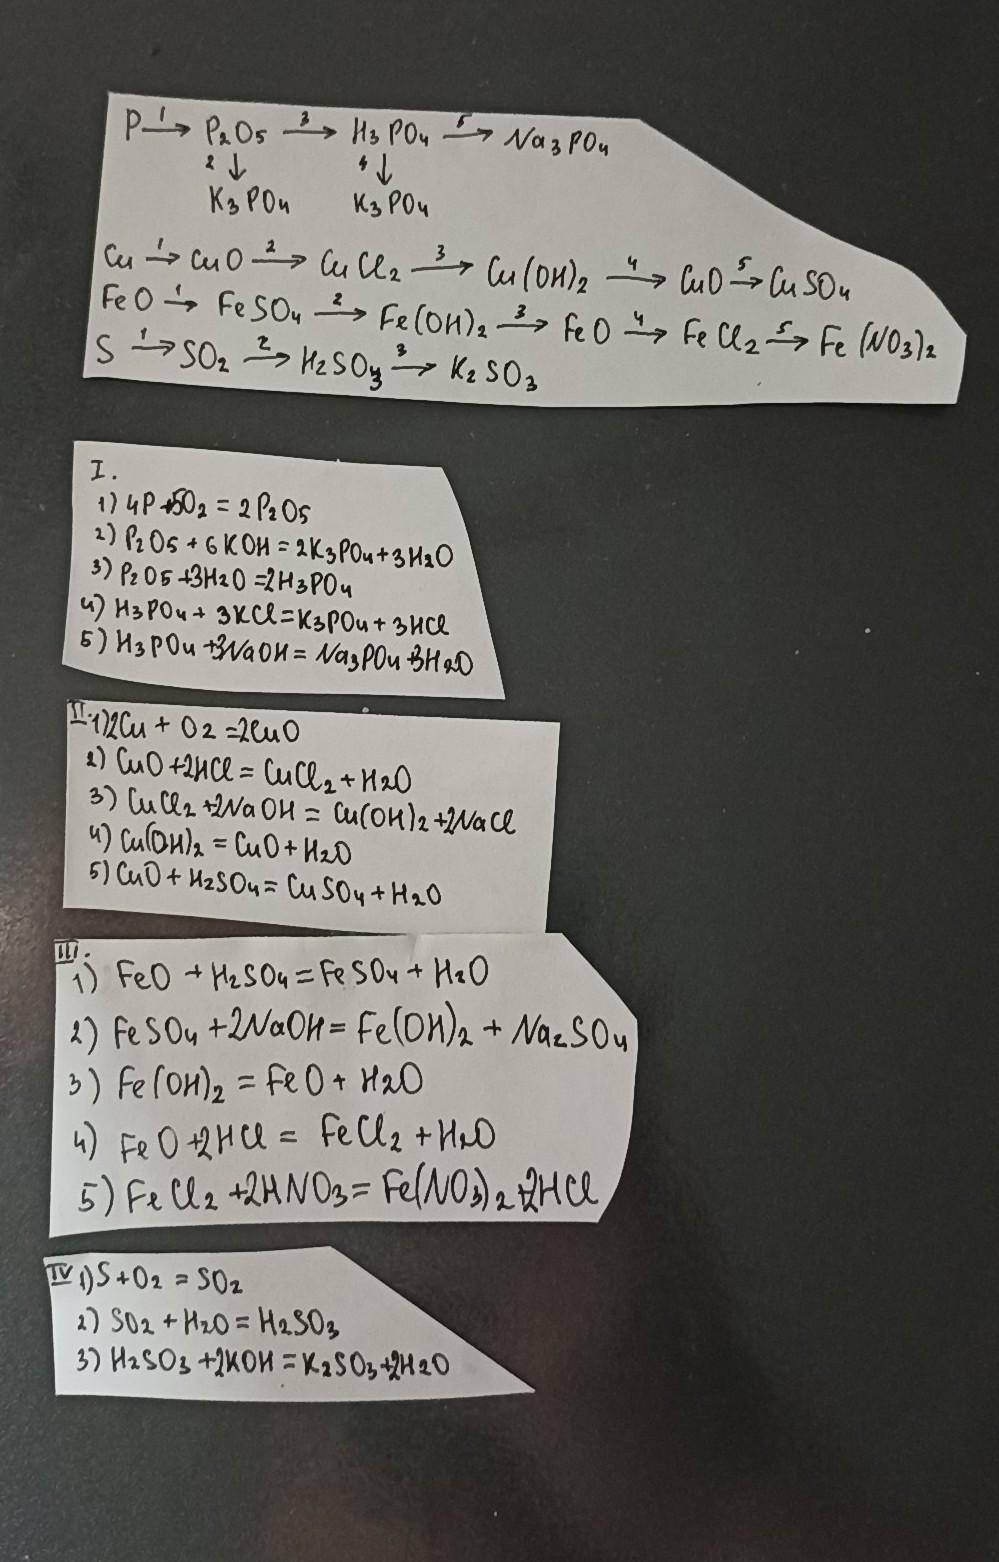 P →¹ P₂O₅ →³ H₃PO₄ →⁵ Na₃PO₄
2↓ 4↓
K₃PO₄ K₃PO₄
Cu →¹ CuO →² CuCl₂ →³ Cu(OH)₂ →⁴ CuO →⁵ CuSO₄
FeO →¹ FeSO₄ →² Fe(OH)₂ →³ FeO →⁴ FeCl₂ →⁵ Fe(NO₃)₂
S →¹ SO₂ →² H₂SO₃ →³ K₂SO₃
I.
1) 4P+5O₂ = 2P₂O₅
2) P₂O₅ + 6KOH = 2K₃PO₄+3H₂O
3) P₂O₅+3H₂O=2H₃PO₄
4) H₃PO₄ + 3KCl=K₃PO₄ + 3HCl
5) H₃PO₄ +3NaOH = Na₃PO₄+3H₂O
II. 1) 2Cu + O₂ =2CuO
2) CuO+2HCl = CuCl₂ + H₂O
3) CuCl₂ +2NaOH = Cu(OH)₂+2NaCl
4) Cu(OH)₂ = CuO + H₂O
5) CuO + H₂SO₄ = CuSO₄ + H₂O
III.
1) FeO + H₂SO₄ = FeSO₄ + H₂O
2) FeSO₄ +2NaOH = Fe(OH)₂ + Na₂SO₄
3) Fe(OH)₂ = FeO + H₂O
4) FeO+2HCl = FeCl₂ + H₂O
5) FeCl₂ +2HNO₃ = Fe(NO₃)₂+2HCl
IV 1) S+O₂ = SO₂
2) SO₂ + H₂O = H₂SO₃
3) H₂SO₃ +2KOH = K₂SO₃+2H₂O